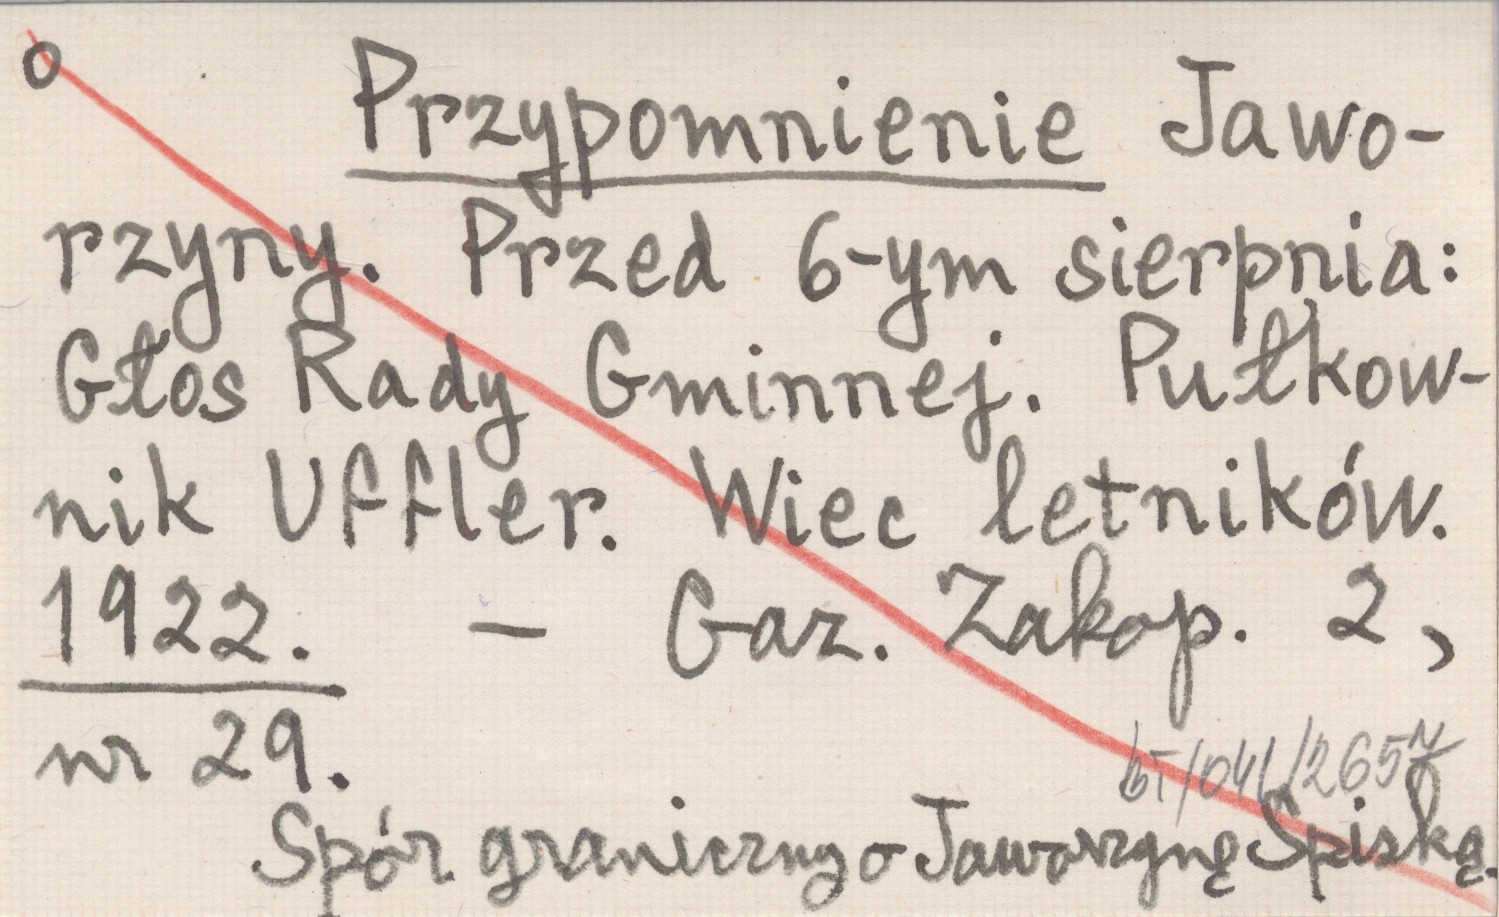 o Przypomnienie Jawo-
rzyny. Przed 6-ym sierpnia:
Głos Rady Gminnej. Pułkow-
nik Uffler. Wiec letników.
1922. – Gaz. Zakop. 2,
nr 29.
Spór graniczny o Jaworzynę Spiską.